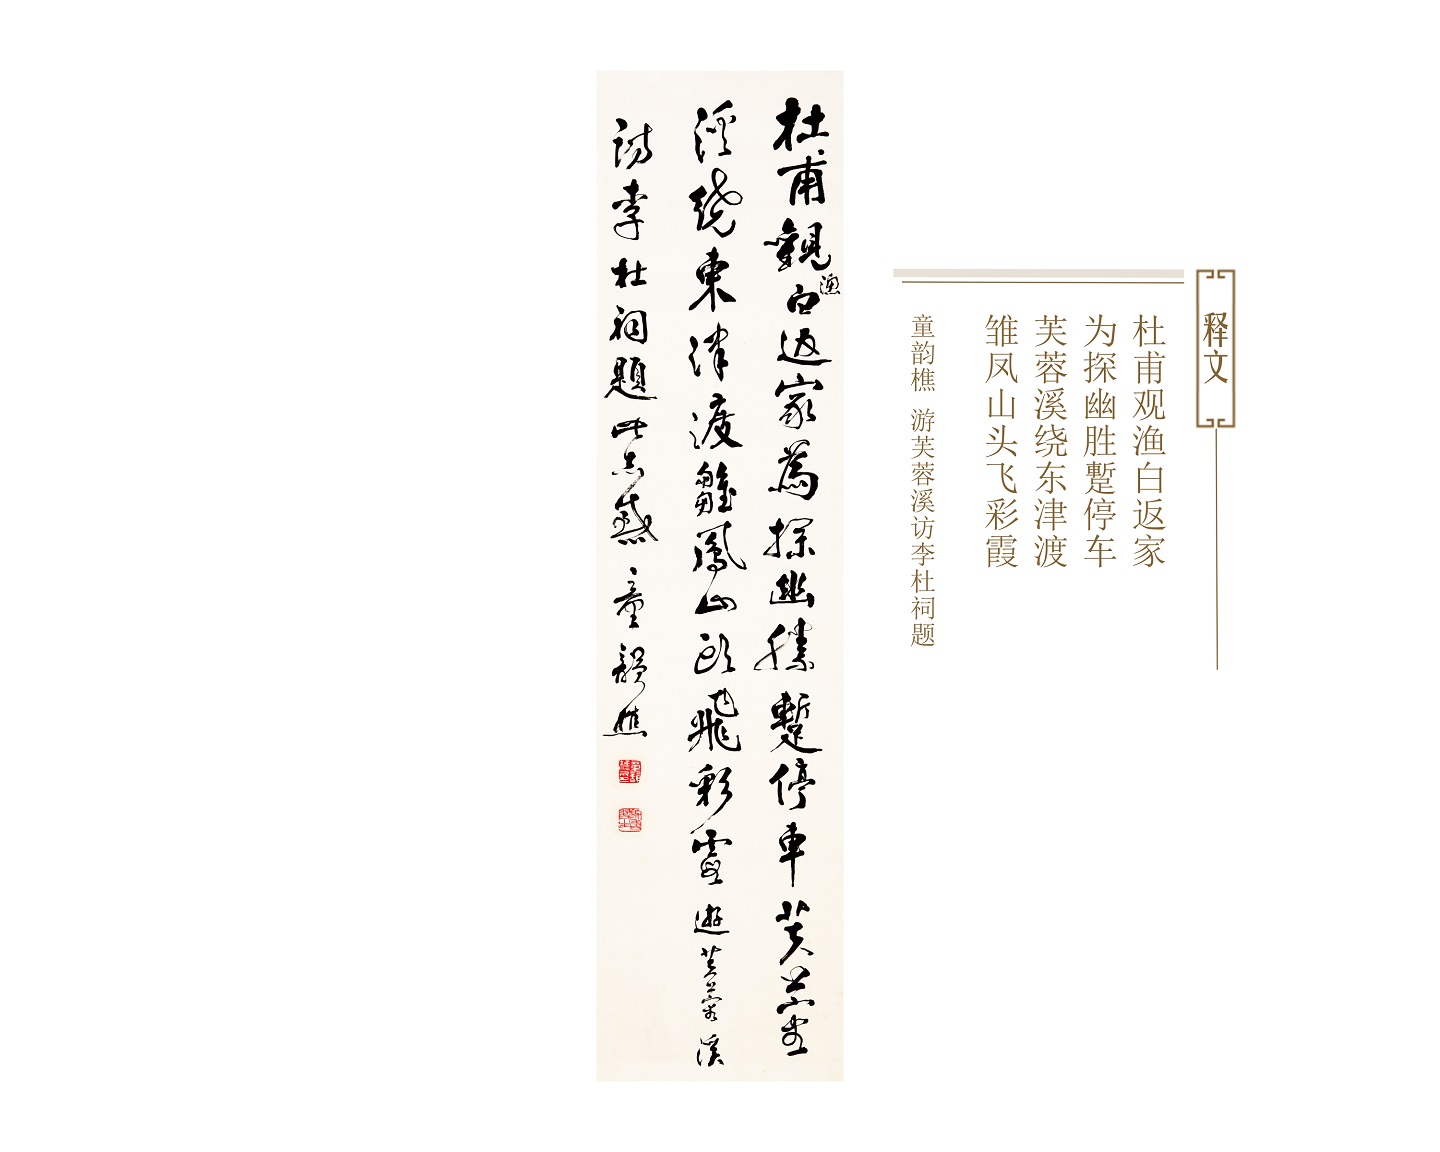 释文
杜甫观渔白返家
为探幽胜蹔停车
芙蓉溪绕东津渡
雏凤山头飞彩霞
童韵樵 游芙蓉溪访李杜祠题
杜甫觀漁白返家為探幽勝蹔停車芙蓉
溪繞東津渡雛鳳山頭飛彩霞遊芙蓉溪
訪李杜祠題此志感童韻樵